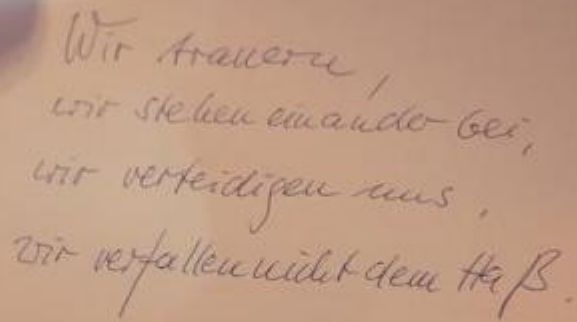 Wir trauern,
wir stehen einander bei,
wir verteidigen uns,
wir verfallen nicht dem Haß.